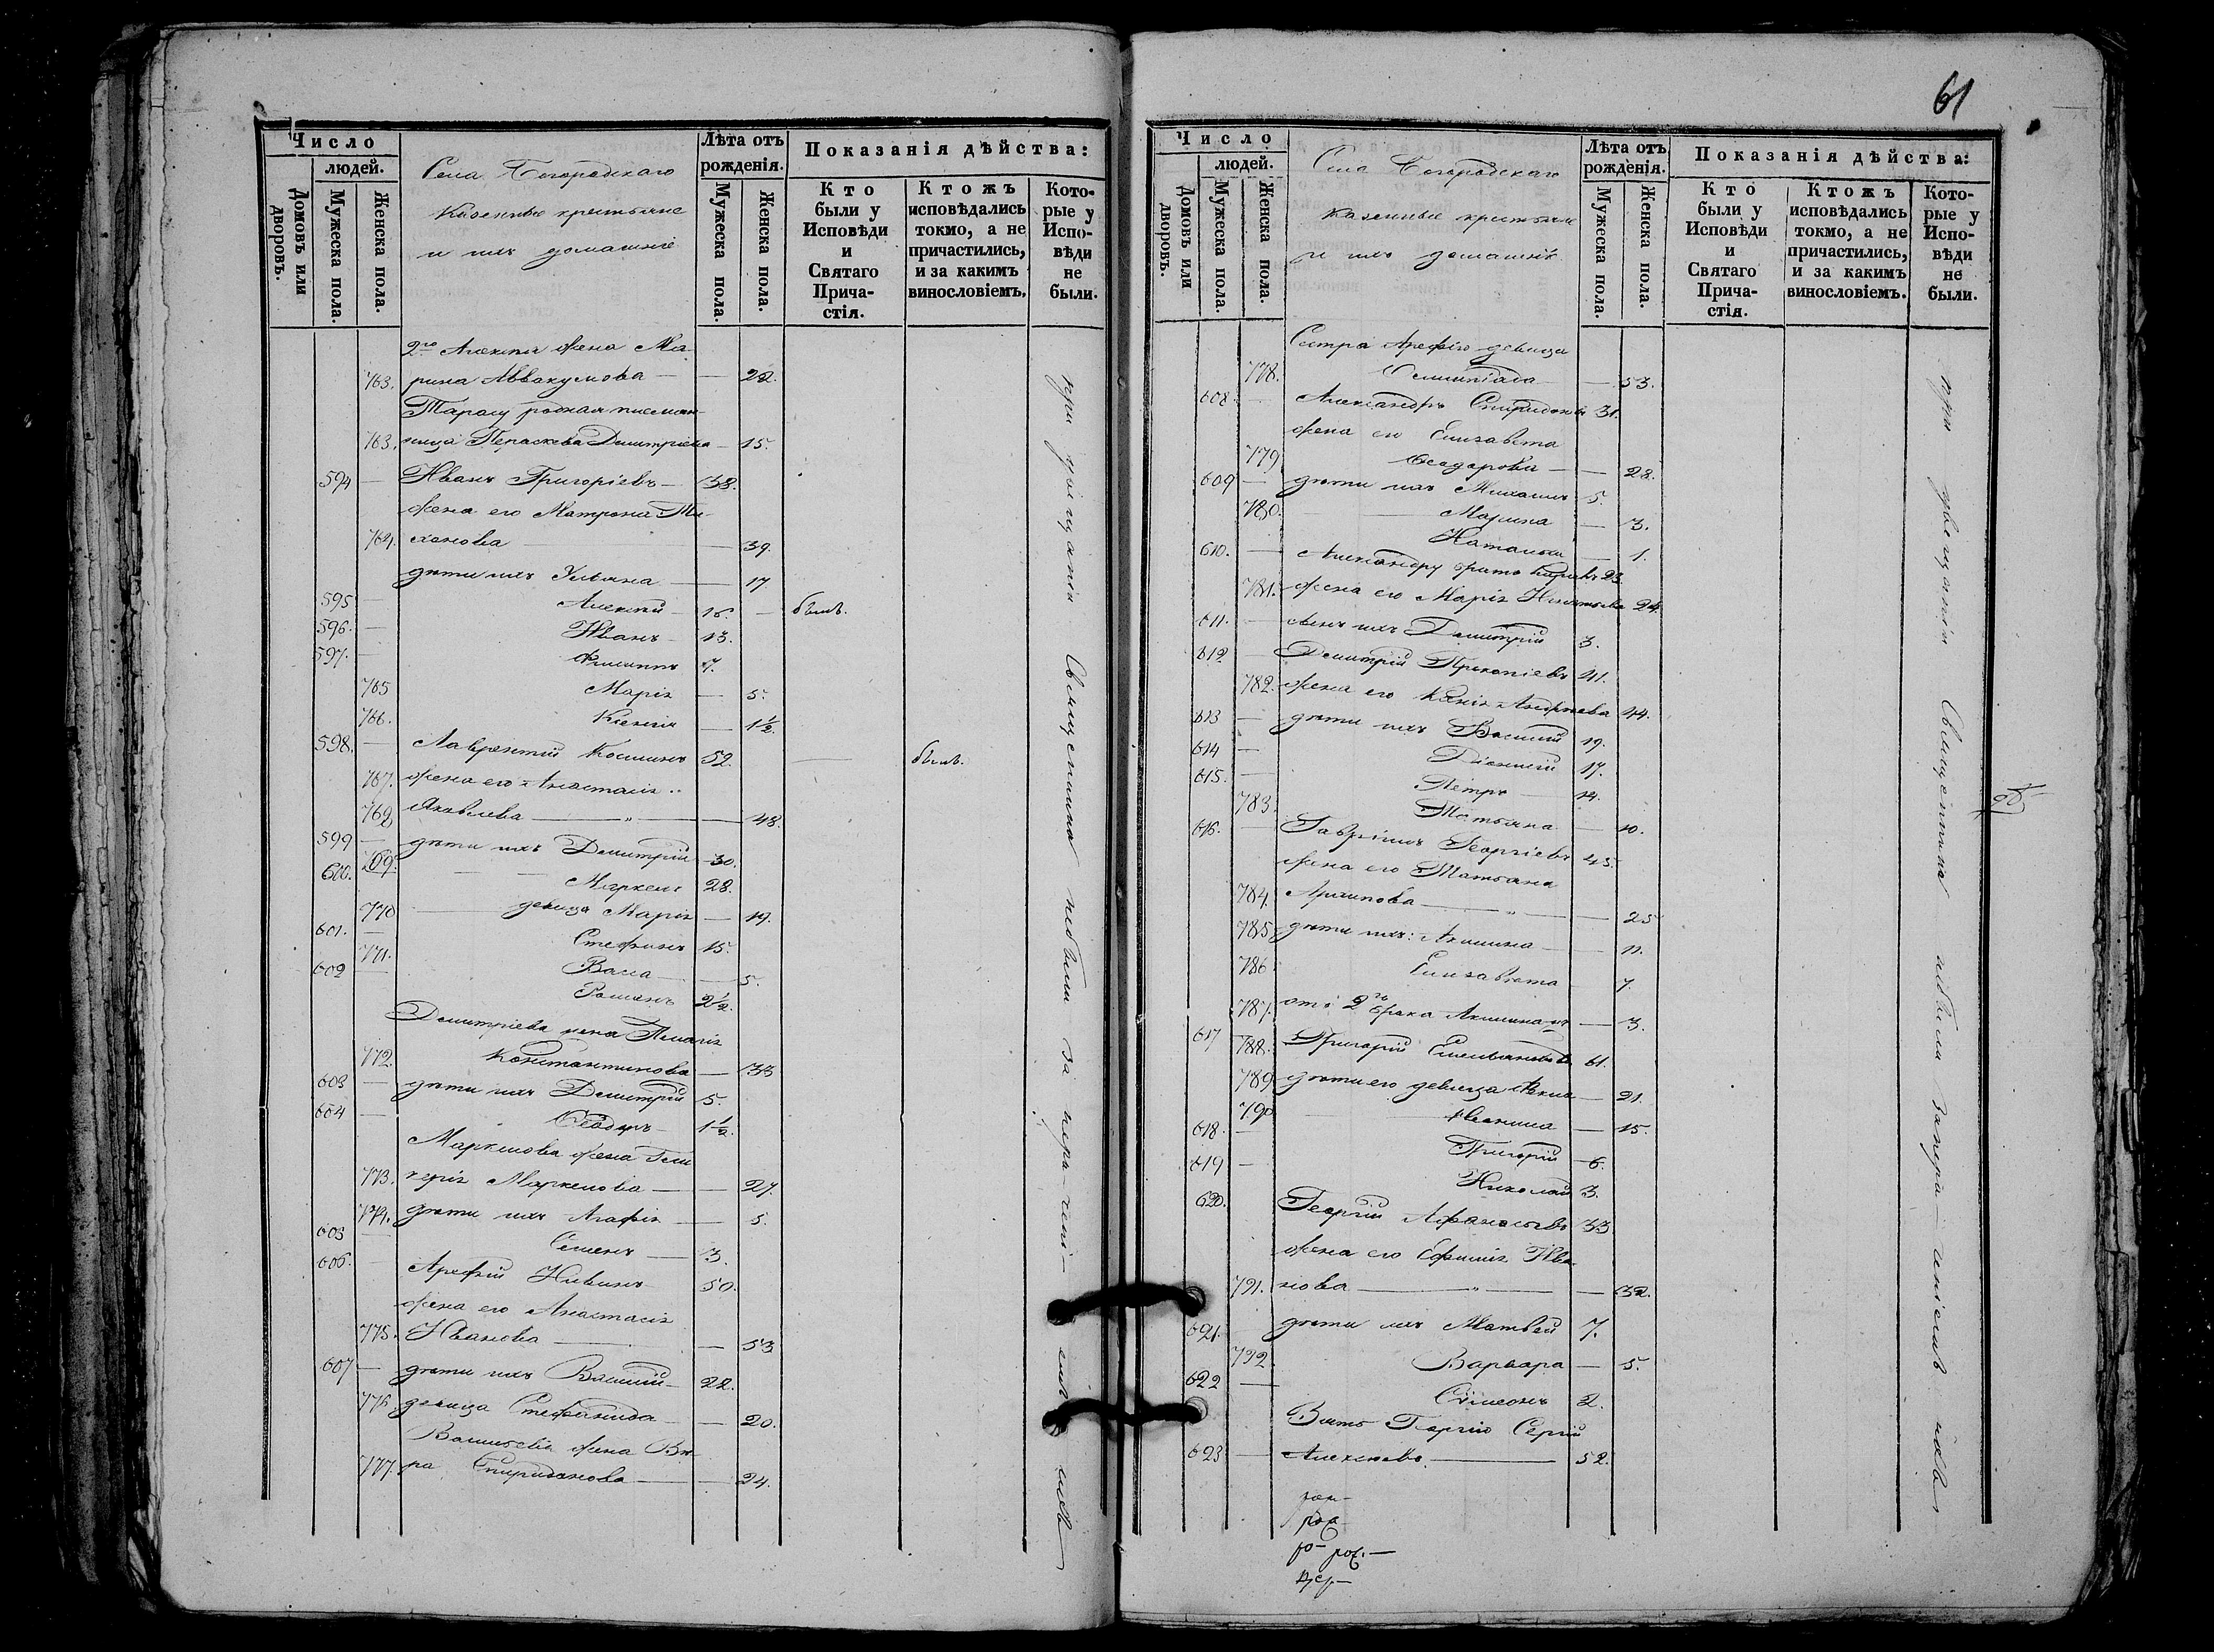 61
Число
людей.
Домовъ или дворовъ.
Мужеска пола.
Женска пола.
Села Богородскаго
Казенные крестьяне
и ихъ домашніе
Лѣта отъ рожденія.
Мужеска пола.
Женска пола.
Показанія дѣйства:
Кто были у Исповѣди и Святаго Причастія.
Ктожъ исповѣдались токмо, а не причастились, и за какимъ винословіемъ.
Которые у Исповѣди не были.
2го Алексѣя жена Ма-
763. рина Аввакумова — — 22.
Тарасу родная племян-
763. ница Пераскева Димитріева — 15.
594 — Иванъ Григоріевъ — 38.
жена его Матрона Ти-
764. ханова — — 39.
дѣти ихъ Ульяна — 17.
595 — Алексѣй — 16. — былъ.
596. — Иванъ — 13.
597. — Филиппъ 7.
765 Марія — 5.
766. Ксенія — 1½.
598. — Лаврентій Косминъ 52. — былъ.
767. жена его Анастасія
768 Яковлева — „ — 48.
599 — дѣти ихъ Димитрій 30.
600. 769. Маркелъ 28.
770 девица Марія — 19.
601. — Стефанъ 15.
771. Васса — 5.
602 — Романъ 2½.
Димитріева жена Пелагія
772. Константинова — 33
603 — дѣти ихъ Димитрій 5.
604 — Ѳеодоръ 1½.
Маркелова жена Гли-
773. керія Маркелова — — 27.
774. дѣти ихъ Агафія — 5.
605 — Семенъ — 3.
606. — Арефій 50.
жена его Анастасія
775. Иванова — — 53
607 — дѣти ихъ Василій — 22.
776. девица Стефанида — — 20.
Васильева жена Вѣ-
777. ра Спиридонова — — 24.
Священника небыли за
Число
людей.
Домовъ или дворовъ.
Мужеска пола.
Женска пола.
Села Богородскаго
Казенные крестьяне
и ихъ домашніе
Лѣта отъ рожденія.
Мужеска пола.
Женска пола.
Показанія дѣйства:
Кто были у Исповѣди и Святаго Причастія.
Ктожъ исповѣдались токмо, а не причастились, и за какимъ винословіемъ.
Которые у Исповѣди не были.
Сестра Арефію девица
778. Олимпіада — 53.
608. — Александръ Спиридоновъ 31.
жена его Елизавета
779 Ѳеодорова — — 28.
609 — дѣти ихъ Михаилъ 5.
780. Марина — 3.
Наталья — 1.
610. — Александру братъ 23.
781. жена его Марія 24.
611. — сынъ ихъ Димитрій 3.
612 — Димитрій Прокопіевъ 41.
782. жена его Ксенія Андреева 44.
613 — дѣти ихъ Василій 19.
614 — Діонисій 17.
615. — Петръ — 14.
783. Татьяна — 10.
616. — Гавріилъ Георгіевъ 45.
жена его Татьяна
784. Архипова — „ — 25
785. дѣти ихъ: Акилина — 11.
786 Елизавета 7.
787. отъ 2го брака Акилина — 3.
617 788. Григорій Емельяновъ 61.
789 дѣти его девица Ѳекла — 21.
790 — 15.
618. — Григорій — 6.
619 — Николай 3.
620. Георгій Афанасьевъ 33
жена его Ефимія Ива-
791. нова — „ — 32.
621. — дѣти ихъ Матвей 7.
792. Варвара — 5.
622 — Сѵмеонъ 2.
Зять Георгію Сергій
623 — Алексѣевъ — 52.
Священника небыли